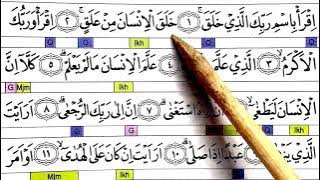 اِقْرَأْ بِاسْمِ رَبِّكَ الَّذِيْ خَلَقَۚ ۝١ خَلَقَ الْاِنْسَانَ مِنْ عَلَقٍۚ ۝٢ اِقْرَأْ وَرَبُّكَ
Q Q Ikh Q Q
الْاَكْرَمُۙ ۝٣ الَّذِيْ ۝٤ عَلَّمَ الْاِنْسَانَ مَا لَمْ يَعْلَمْۗ ۝٥ كَلَّآ اِنَّ
G Mjm Ikh G
الْاِنْسَانَ لَيَطْغٰٓىۙ ۝٦ اسْتَغْنٰىۗ ۝٧ اِنَّ اِلٰى رَبِّكَ الرُّجْعٰىۗ ۝٨ اَرَاَيْتَ
G Q G Ikh
الَّذِيْ عَبْدًا اِذَا صَلّٰىۗ ۝١٠ اَرَاَيْتَ اِنْ كَانَ عَلَى الْهُدٰىۙ ۝١١ اَوْ اَمَرَ
Mjm Ikh Q